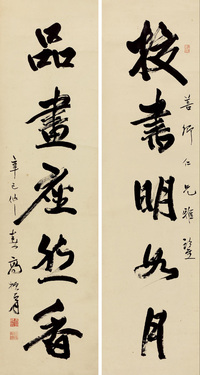 善卿仁兄雅鑒
校書明如月
品畫座然香
辛巳仲春高振霄